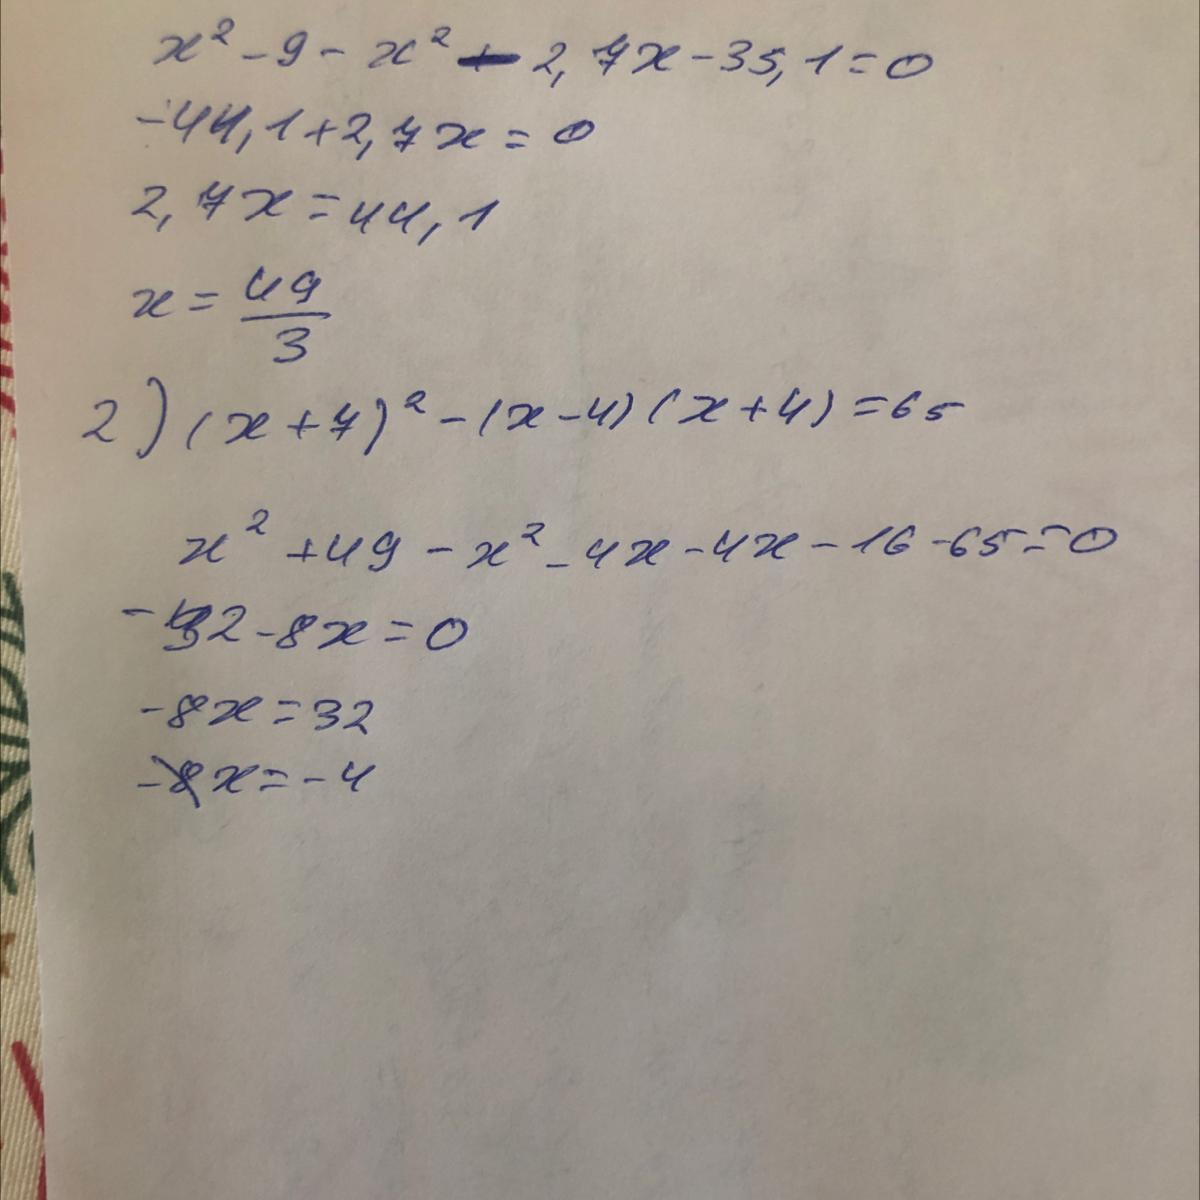 x² - 9 - x² + 2,7x - 35,1 = 0
-44,1 + 2,7x = 0
2,7x = 44,1
x = 49/3
2) (x + 7)² - (x - 4)(x + 4) = 65
x² + 49 - x² - 4x - 4x - 16 - 65 = 0
-32 - 8x = 0
-8x = 32
x = -4